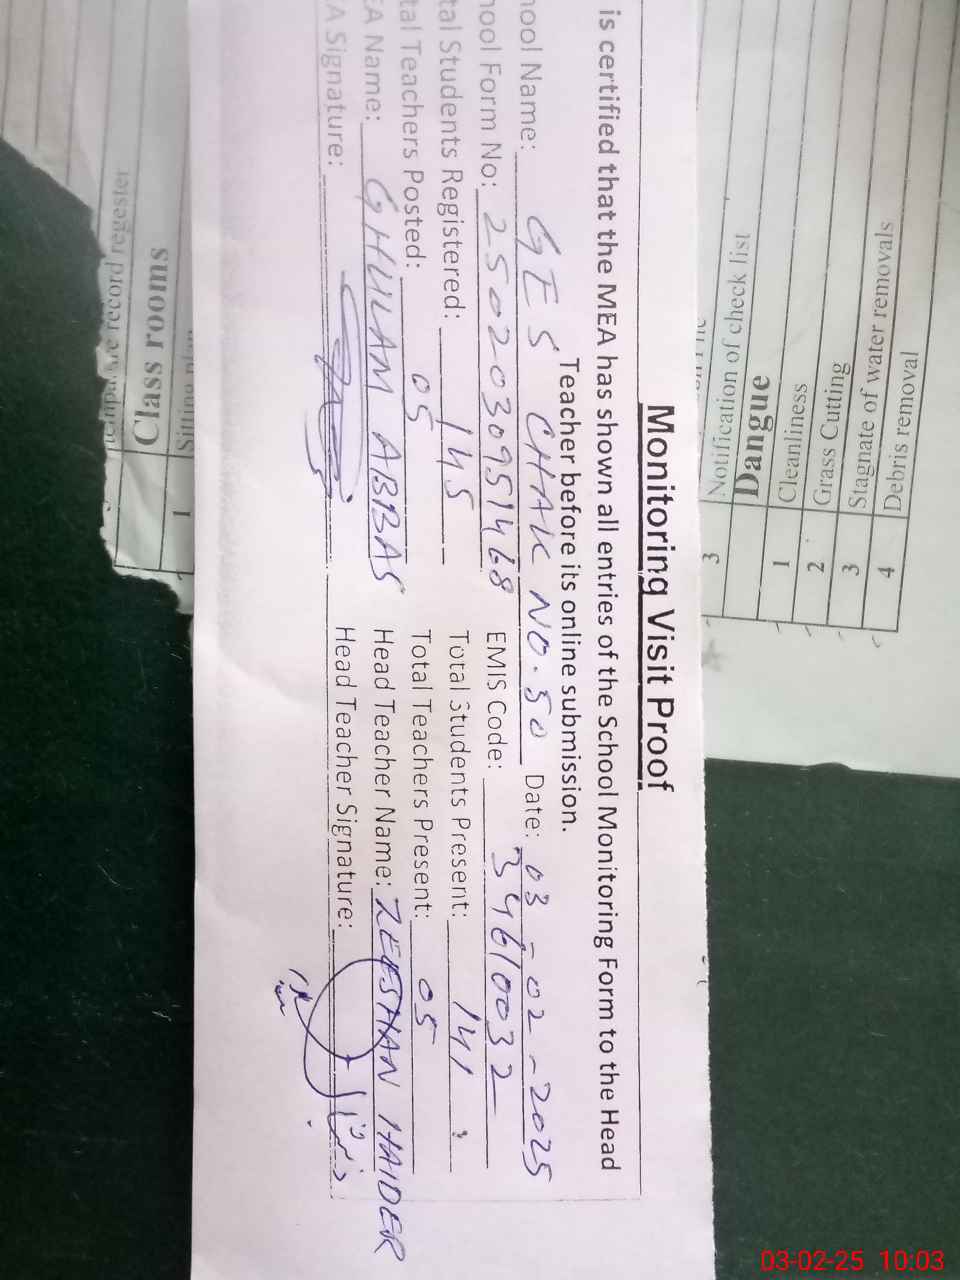 Monitoring Visit Proof
is certified that the MEA has shown all entries of the School Monitoring Form to the Head
Teacher before its online submission.
hool Name: GES CHAK NO.50 Date: 03-02-2025
hool Form No: 2502030951468 EMIS Code: 34610032
tal Students Registered: 145 Total Students Present: 141
tal Teachers Posted: 05 Total Teachers Present: 05
EA Name: GHULAM ABBAS Head Teacher Name: ZEESHAN HAIDER
A Signature: Head Teacher Signature:
record regester
Class rooms
1
3 Notification of check list
Dangue
1 Cleanliness
2 Grass Cutting
3 Stagnate of water removals
4 Debris removal
03-02-25 10:03